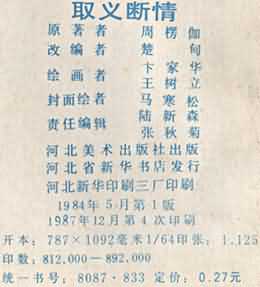 取义断情
原著者 周楞伽
改编者 楚甸
绘画者 卞家华
王树立
封面绘者 马寒松
责任编辑 陆新森
张秋菊
河北美术出版社出版
河北省新华书店发行
河北新华印刷三厂印刷
1984年5月第1版
1987年12月第4次印刷
开本:787×1092毫米1/64印张:1.125
印数:812,000—892,000
统一书号:8087·833 定价:0.27元